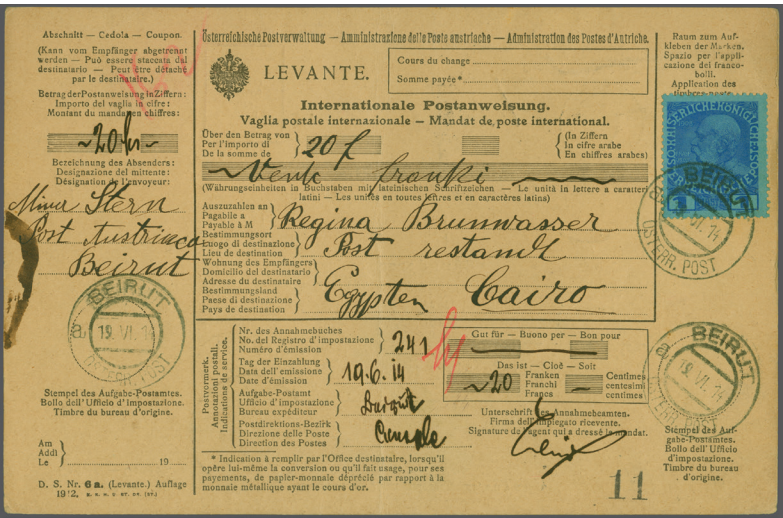 Abschnitt — Cedola — Coupon.
(Kann vom Empfänger abgetrennt
werden — Può essere staccata dal
destinatario — Peut être détaché
par le destinataire.)
Betrag der Postanweisung in Ziffern:
Importo del vaglia in cifre:
Montant du mandat en chiffres:
~20 frs~
Bezeichnung des Absenders:
Designazione del mittente:
Désignation de l'envoyeur:
Mina Stern
Post Austriaca
Beirut
BEIRUT
a
19. VI. 14
ÖSTERR. POST
Stempel des Aufgabe-Postamtes.
Bollo dell' Ufficio d'impostazione.
Timbre du bureau d'origine.
Am
Addì
Le
19
D. S. Nr. 6 a. (Levante.) Auflage
1912.
Österreichische Postverwaltung — Amministrazione delle Poste austriache — Administration des Postes d'Autriche.
LEVANTE.
Cours du change
Somme payée*
Internationale Postanweisung.
Vaglia postale internazionale — Mandat de poste international.
Über den Betrag von
Per l'importo di
De la somme de
20 f
(In Ziffern
In cifre arabe
En chiffres arabes)
Venti franki
(Währungseinheiten in Buchstaben mit lateinischen Schriftzeichen — Le unità in lettere a caratteri
latini — Les unités en toutes lettres et en caractères latins)
Auszuzahlen an
Pagabile a
Payable à M
Regina Brunwasser
Bestimmungsort
Luogo di destinazione
Lieu de destination
Post restandt
Wohnung des Empfängers
Domicilio del destinatario
Adresse du destinataire
Bestimmungsland
Paese di destinazione
Pays de destination
Egypten Cairo
Postvormerk.
Annotazioni postali.
Indications de service.
Nr. des Annahmebuches
No. del Registro d'impostazione
Numéro d'émission
241
Tag der Einzahlung
Data dell'emissione
Date d'émission
19.6.14
Aufgabe-Postamt
Ufficio d'impostazione
Bureau expéditeur
Postdirektions-Bezirk
Direzione delle Poste
Direction des Postes
Gut für — Buono per — Bon pour
Das ist — Cioè — Soit
~20
Franken
Franchi
Francs
Centimes
centesimi
centimes
Unterschrift des Annahmebeamten.
Firma dell'Impiegato ricevente.
Signature de l'agent qui a dressé le mandat.
* Indication à remplir par l'Office destinataire, lorsqu'il
opère lui-même la conversion ou qu'il fait usage, pour ses
payements, de papier-monnaie déprécié par rapport à la
monnaie métallique ayant le cours d'or.
11
Raum zum Auf-
kleben der Marken.
Spazio per l'appli-
cazione dei franco-
bolli.
Application des
timbres-poste
BEIRUT
a
VI. 14
ÖSTERR. POST
BEIRUT
a
19. VI. 14
Stempel des Auf-
gabe-Postamtes.
Bollo dell' Ufficio
d'impostazione.
Timbre du bureau
d'origine.